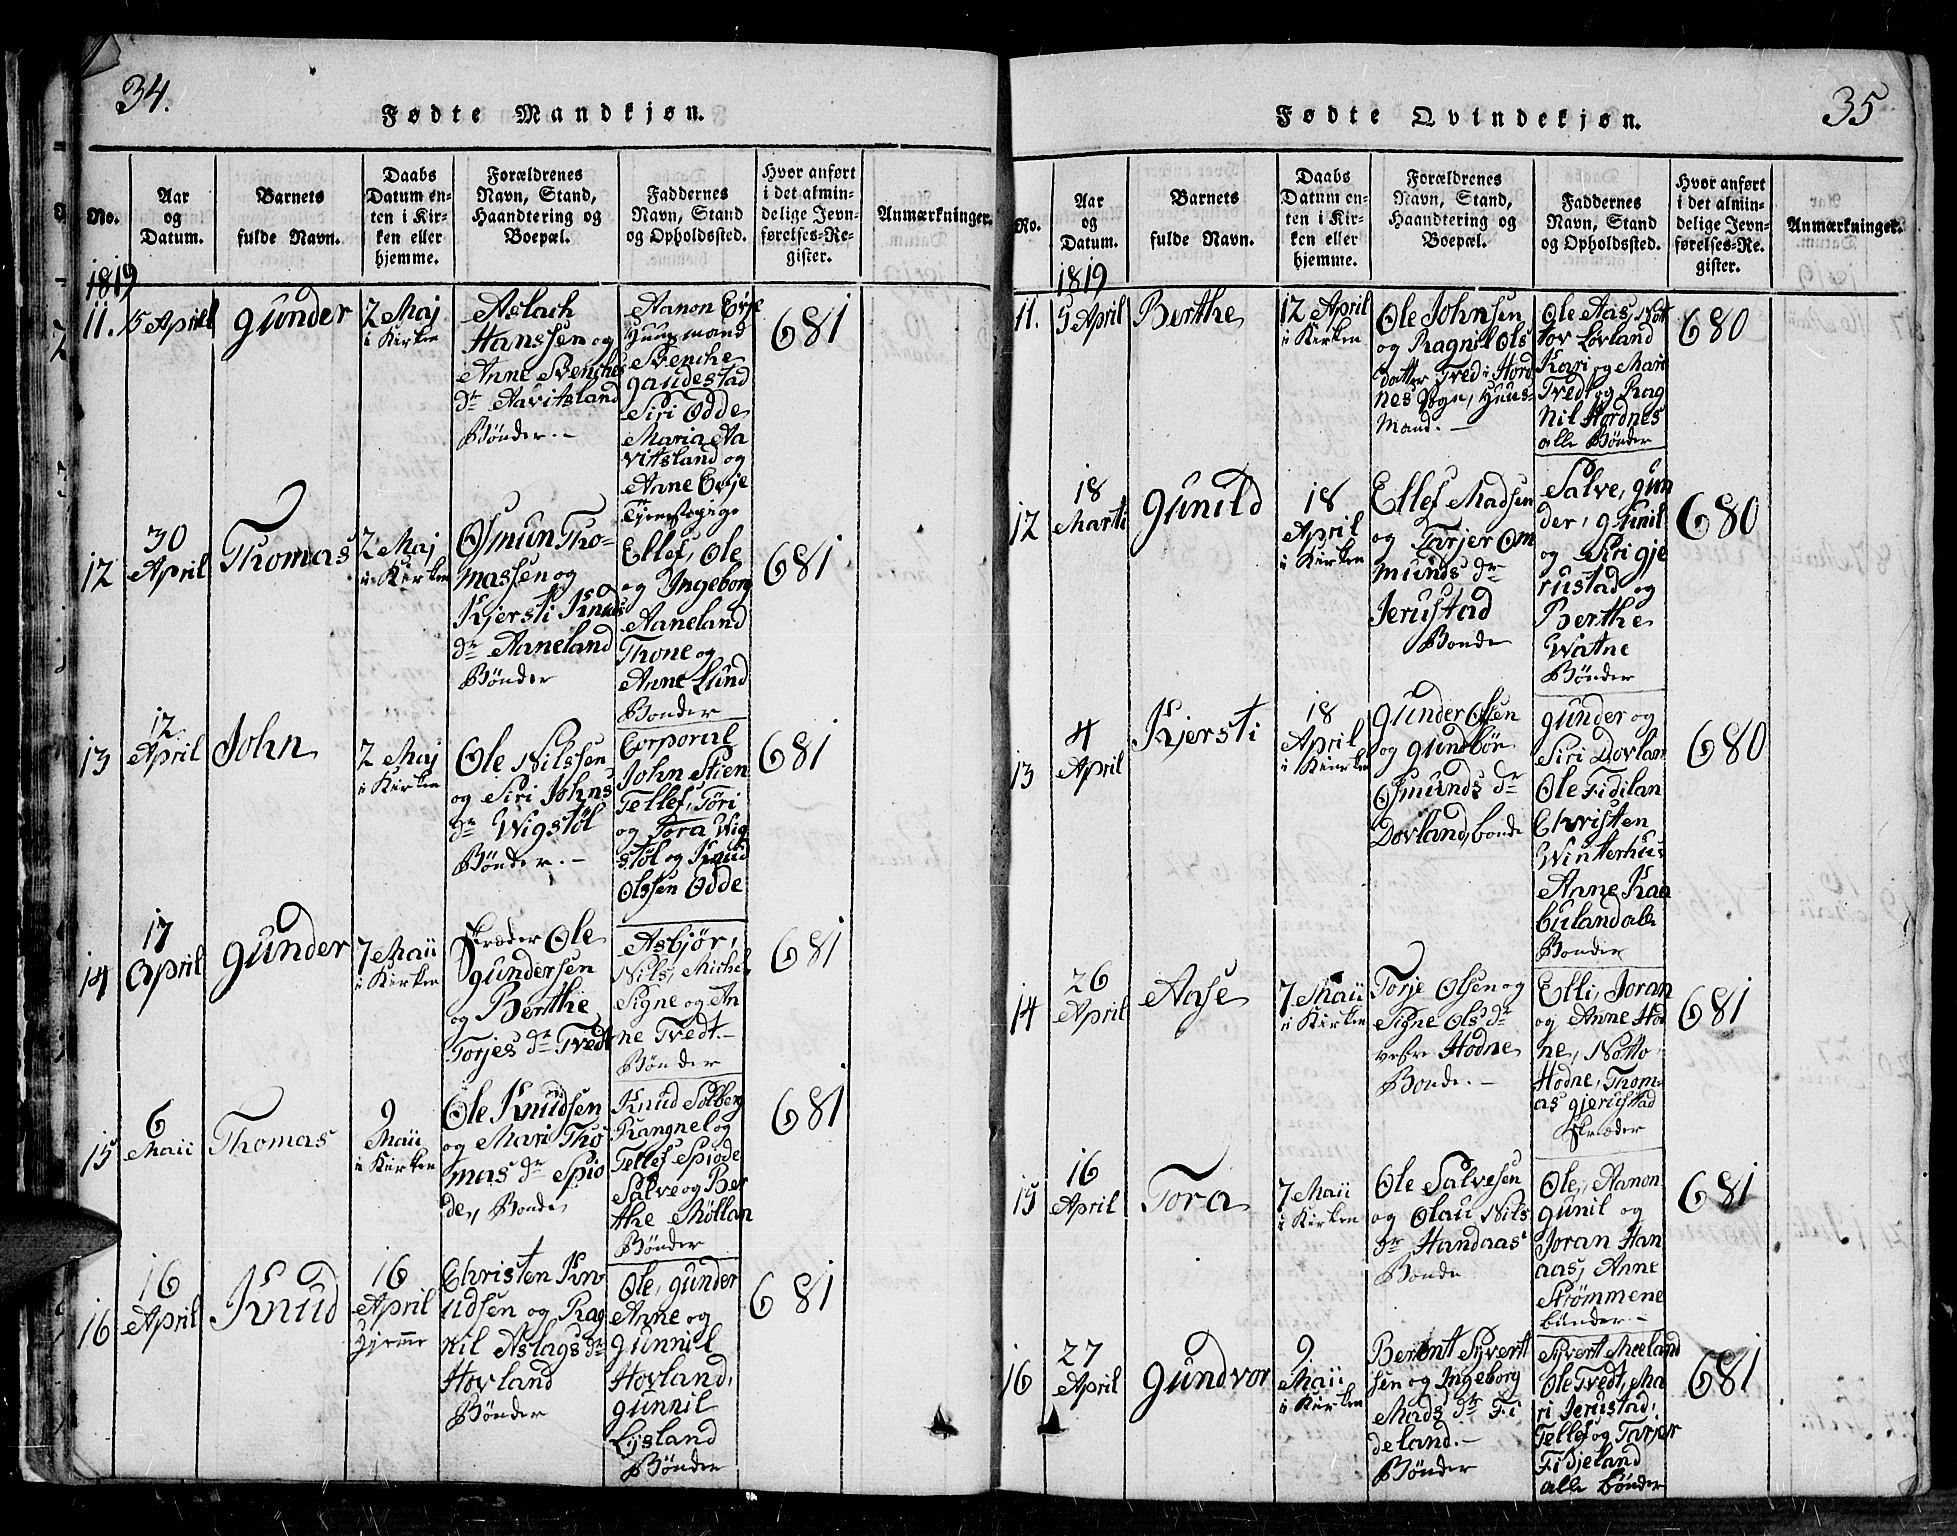 34.
Fødte Mandkjøn.
No.
Aar
og
Datum.
Barnets
fulde Navn.
Daabs
Datum en-
ten i Kir-
ken eller
hjemme.
Forældrenes
Navn, Stand,
Haandtering og
Boepæl.
Faddernes
Navn, Stand
og Opholdssted.
Hvor anført
i det almin-
delige Jevn-
førelses-Re-
gister.
Anmærkninger.
1819
11.
15 April
Gunder
2 Maj
i Kirken
Aslach
Hanssen og
Anne Svenches
dr Aavitsland
Bønder.-
Aanon Evje
Huusmand
Svenche
Gaudestad
Siri Odde
Maria Aa
vitsland og
Anne Evje
Tjenstepige
681
12
30
April
Thomas
2 Maj
i Kirken
Osmun Tho-
massen og
Kjersti Knuds
dr Aaneland
Bønder
Ellef, Ole
og Ingeborg
Aaneland
Throne og
Anne Lund
Bønder
681
13
12
April
John
2 Maj
i Kirken
Ole Nilssen
og Siri Johns
dr Wigstøl
Bønder.-
Corporal
John Stien
Tellef, Tori
og Tora Wig
støl og Knud
Olssen Odde
681
14
17
April
Gunder
7 Maii
i Kirken
Skræder Ole
Gundersen
og Berthe
Torjes dr Tvedt
Asbjør,
Nils, Michel
Signe og An
ne Tvedt.-
Bønder
681
15
6
Maii
Thomas
9
Maii
i Kirken
Ole Knudsen
og Mari Tho
mas dr Spio
de, Bonde
Knud Solberg
Rangnel og
Tellef Spiode
Salve og Ber
the Møllan
Bønder
681
16
16
April
Knud
16
April
Hjemme
Christen Kn
udsen og Rag
nil Aslags dr
Hovland
Bønder
Ole, Gunder
Anne og
Gunnil
Hovland,
Gunnil
Lysland
Bønder
681
35
Fødte Qvindekjøn.
No.
Aar
og
Datum.
Barnets
fulde Navn.
Daabs
Datum en-
ten i Kir-
ken eller
hjemme.
Forældrenes
Navn, Stand,
Haandtering og
Boepæl.
Faddernes
Navn, Stand
og Opholdssted.
Hvor anført
i det almin-
delige Jevn-
førelses-Re-
gister.
Anmærkninger.
1819
11.
5 April
Berthe
12 April
i Kirken
Ole Johnsen
og Ragnil Ols
datter Tved i Hord
nes Sogn, Huus-
Mand.-
Ole Aas, Nott
tov Løvland
Kari og Mari
Tvedt og Rag
nil Hordnes
alle Bønder
680
12
18
Marti
Gunild
18
April
i Kirken
Ellef Madsen
og Tarjer Om
munds dr
Jerustad
Bonde
Salve, Gun
der, Gunil
og Siri Gje
rustad og
Berthe
Watne
Bønder
680
13
4
April
Kjersti
18
April
i Kirken
Gunder Olsen
og Gundbør
Osmunds dr
Dovland, bonde
Gunder og
Siri Dovlan
Ole Fidilan
Christen
Winterhus
Anne Kaa
Cuiland alle
Bonder
680
14
26
April
Aase
7 Maii
i Kirken
Torje Olsen og
Signe Ols dr
vestre Hodne
Bonde.-
Elli, Joran
og Anne Hod
ne, Notto
Hodne, Thom
as Gjerustad
Skræder
681
15
16
April
Tora
7 Maii
i Kirken
Ole Salvesen
og Olau Nils
dr Handaas
Bonde
Ole, Aanon
Gunil og
Joran Han
aas, Anne
Strømmene
bunder.-
681
16
27
April
Gundvor
9
Maii
i Kirken
Berent Syvert
sen og Ingeborg
Mads dr Fi
deland.-
Bønder
Syvert Mæland
Ole Tvedt, Ma
ri Jerustad,
Tellef og Tarjer
Fidjeland
alle bønder
681